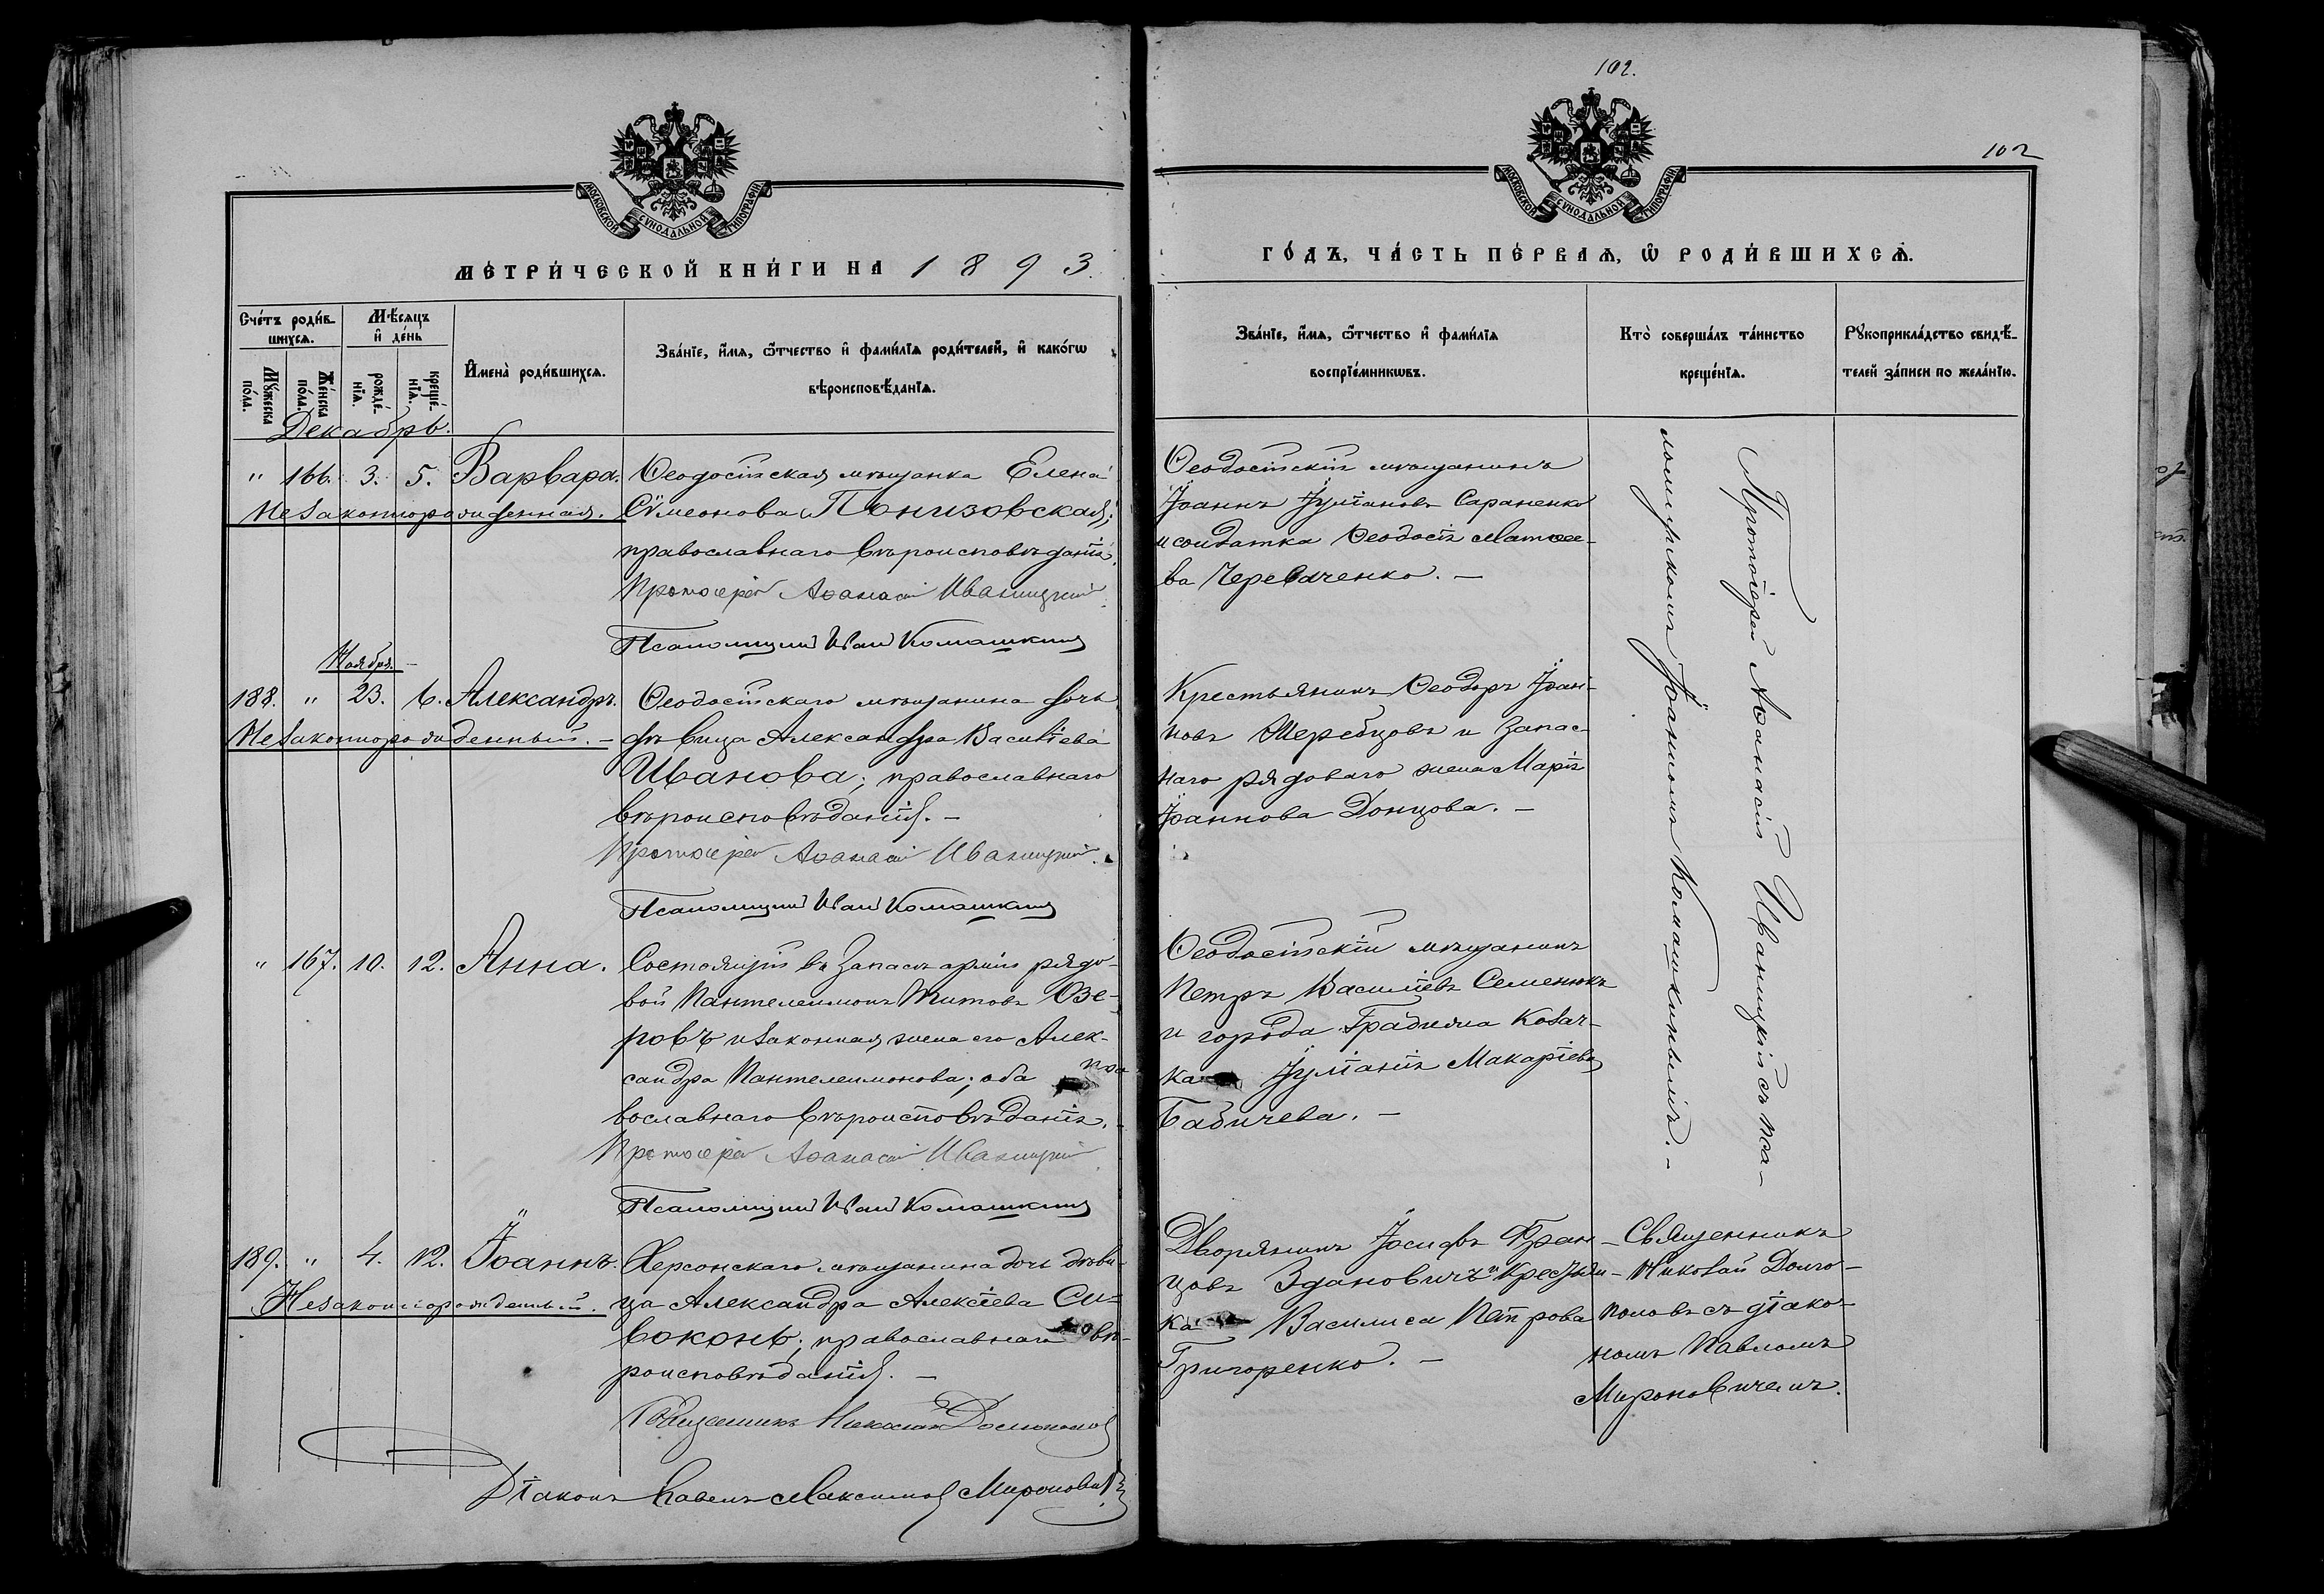 102.
102
МОСКОВСКОЙ СѴНОДАЛЬНОЙ ТИПОГРАФІИ
МОСКОВСКОЙ СѴНОДАЛЬНОЙ ТИПОГРАФІИ
МЕ́ТРИ́ЧЕСКОЙ КНИ́ГИ НА 1893.
ГО́ДЪ, ЧА́СТЬ ПЕ́РВАѦ, Ѡ҆ РОДИ́ВШИХСѦ.
Сче́тъ роди́в-
шихсѧ.
Мꙋ́жеска по́ла.
Же́нска по́ла.
Мѣ́сѧцъ и҆ де́нь
рожде́-
нїѧ.
креще́-
нїѧ.
И҆мена̀ роди́вшихсѧ.
Зва́нїе, и҆́мѧ, ѻ҆́тчество и҆ фами́лїѧ роди́телей, и҆ како́гѡ
вѣроисповѣ́данїѧ.
Зва́нїе, и҆́мѧ, ѻ҆́тчество и҆ фами́лїѧ
воспрїе́мникѡвъ.
Кто̀ соверша́лъ та́инство
креще́нїѧ.
Рꙋкоприкла́дство свидѣ́-
телей за́писи по жела́нїю.
Декабрь.
" 166. 3. 5. Варвара.
Незаконнорожденная.
Ѳеодосійская мѣщанка Елена
Сѵмеонова Понизовская;
православнаго вѣроисповѣданія.
Протоіерей Аѳанасій Иваницкій
Псаломщикъ Иван Комашкинъ
Ѳеодосійскій мѣщанинъ
Іоаннъ Іуліановъ Сараненко
и солдатка Ѳеодосія Матѳее-
ва Черевченко. —
Протоіерей Аѳанасій Иваницкій съ пса-
ломщикомъ Іоанномъ Комашкинымъ. —
Ноября.
188. " 23. 6. Александръ.
Незаконнорожденный. —
Ѳеодосійскаго мѣщанина дочь
дѣвица Александра Васильева
Иванова; православнаго
вѣроисповѣданія. —
Протоіерей Аѳанасій Иваницкій.
Псаломщикъ Иван Комашкинъ
Крестьянинъ Ѳеодоръ Іоан-
новъ Жеребцовъ и запас-
наго рядоваго жена Марія
Іоаннова Донцова. —
" 167. 10. 12. Анна.
Состоящій въ запасѣ арміи рядо-
вой Пантелеимонъ Титовъ Озе-
ровъ и законная жена его Алек-
сандра Пантелеимонова; оба пра
вославнаго вѣроисповѣданія. —
Протоіерей Аѳанасій Иваницкій
Псаломщикъ Иван Комашкинъ
Ѳеодосійскій мѣщанинъ
Петръ Васильевъ Семенюкъ
и города Градижа козач-
ка Іуліанія Макаріева
Бабичева. —
189. " 4. 12. Іоаннъ.
Незаконнорожденный.
Херсонскаго мѣщанина дочь дѣви-
ца Александра Алексіева Си-
воконь; православнаго вѣ-
роисповѣданія. —
Священникъ Николай Долгополовъ
Діаконъ Павелъ Максимовъ Мироновичъ
Дворянинъ Іосифъ Фран-
цовъ Здановичъ и крестьян-
ка Василиса Петрова
Григоренко. —
Священникъ
Николай Долго-
половъ съ діако-
номъ Павломъ
Мироновичемъ.